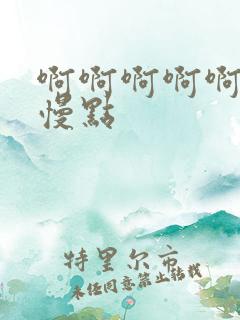 啊啊啊啊啊
慢點
特里尔市
未经同意禁止转载